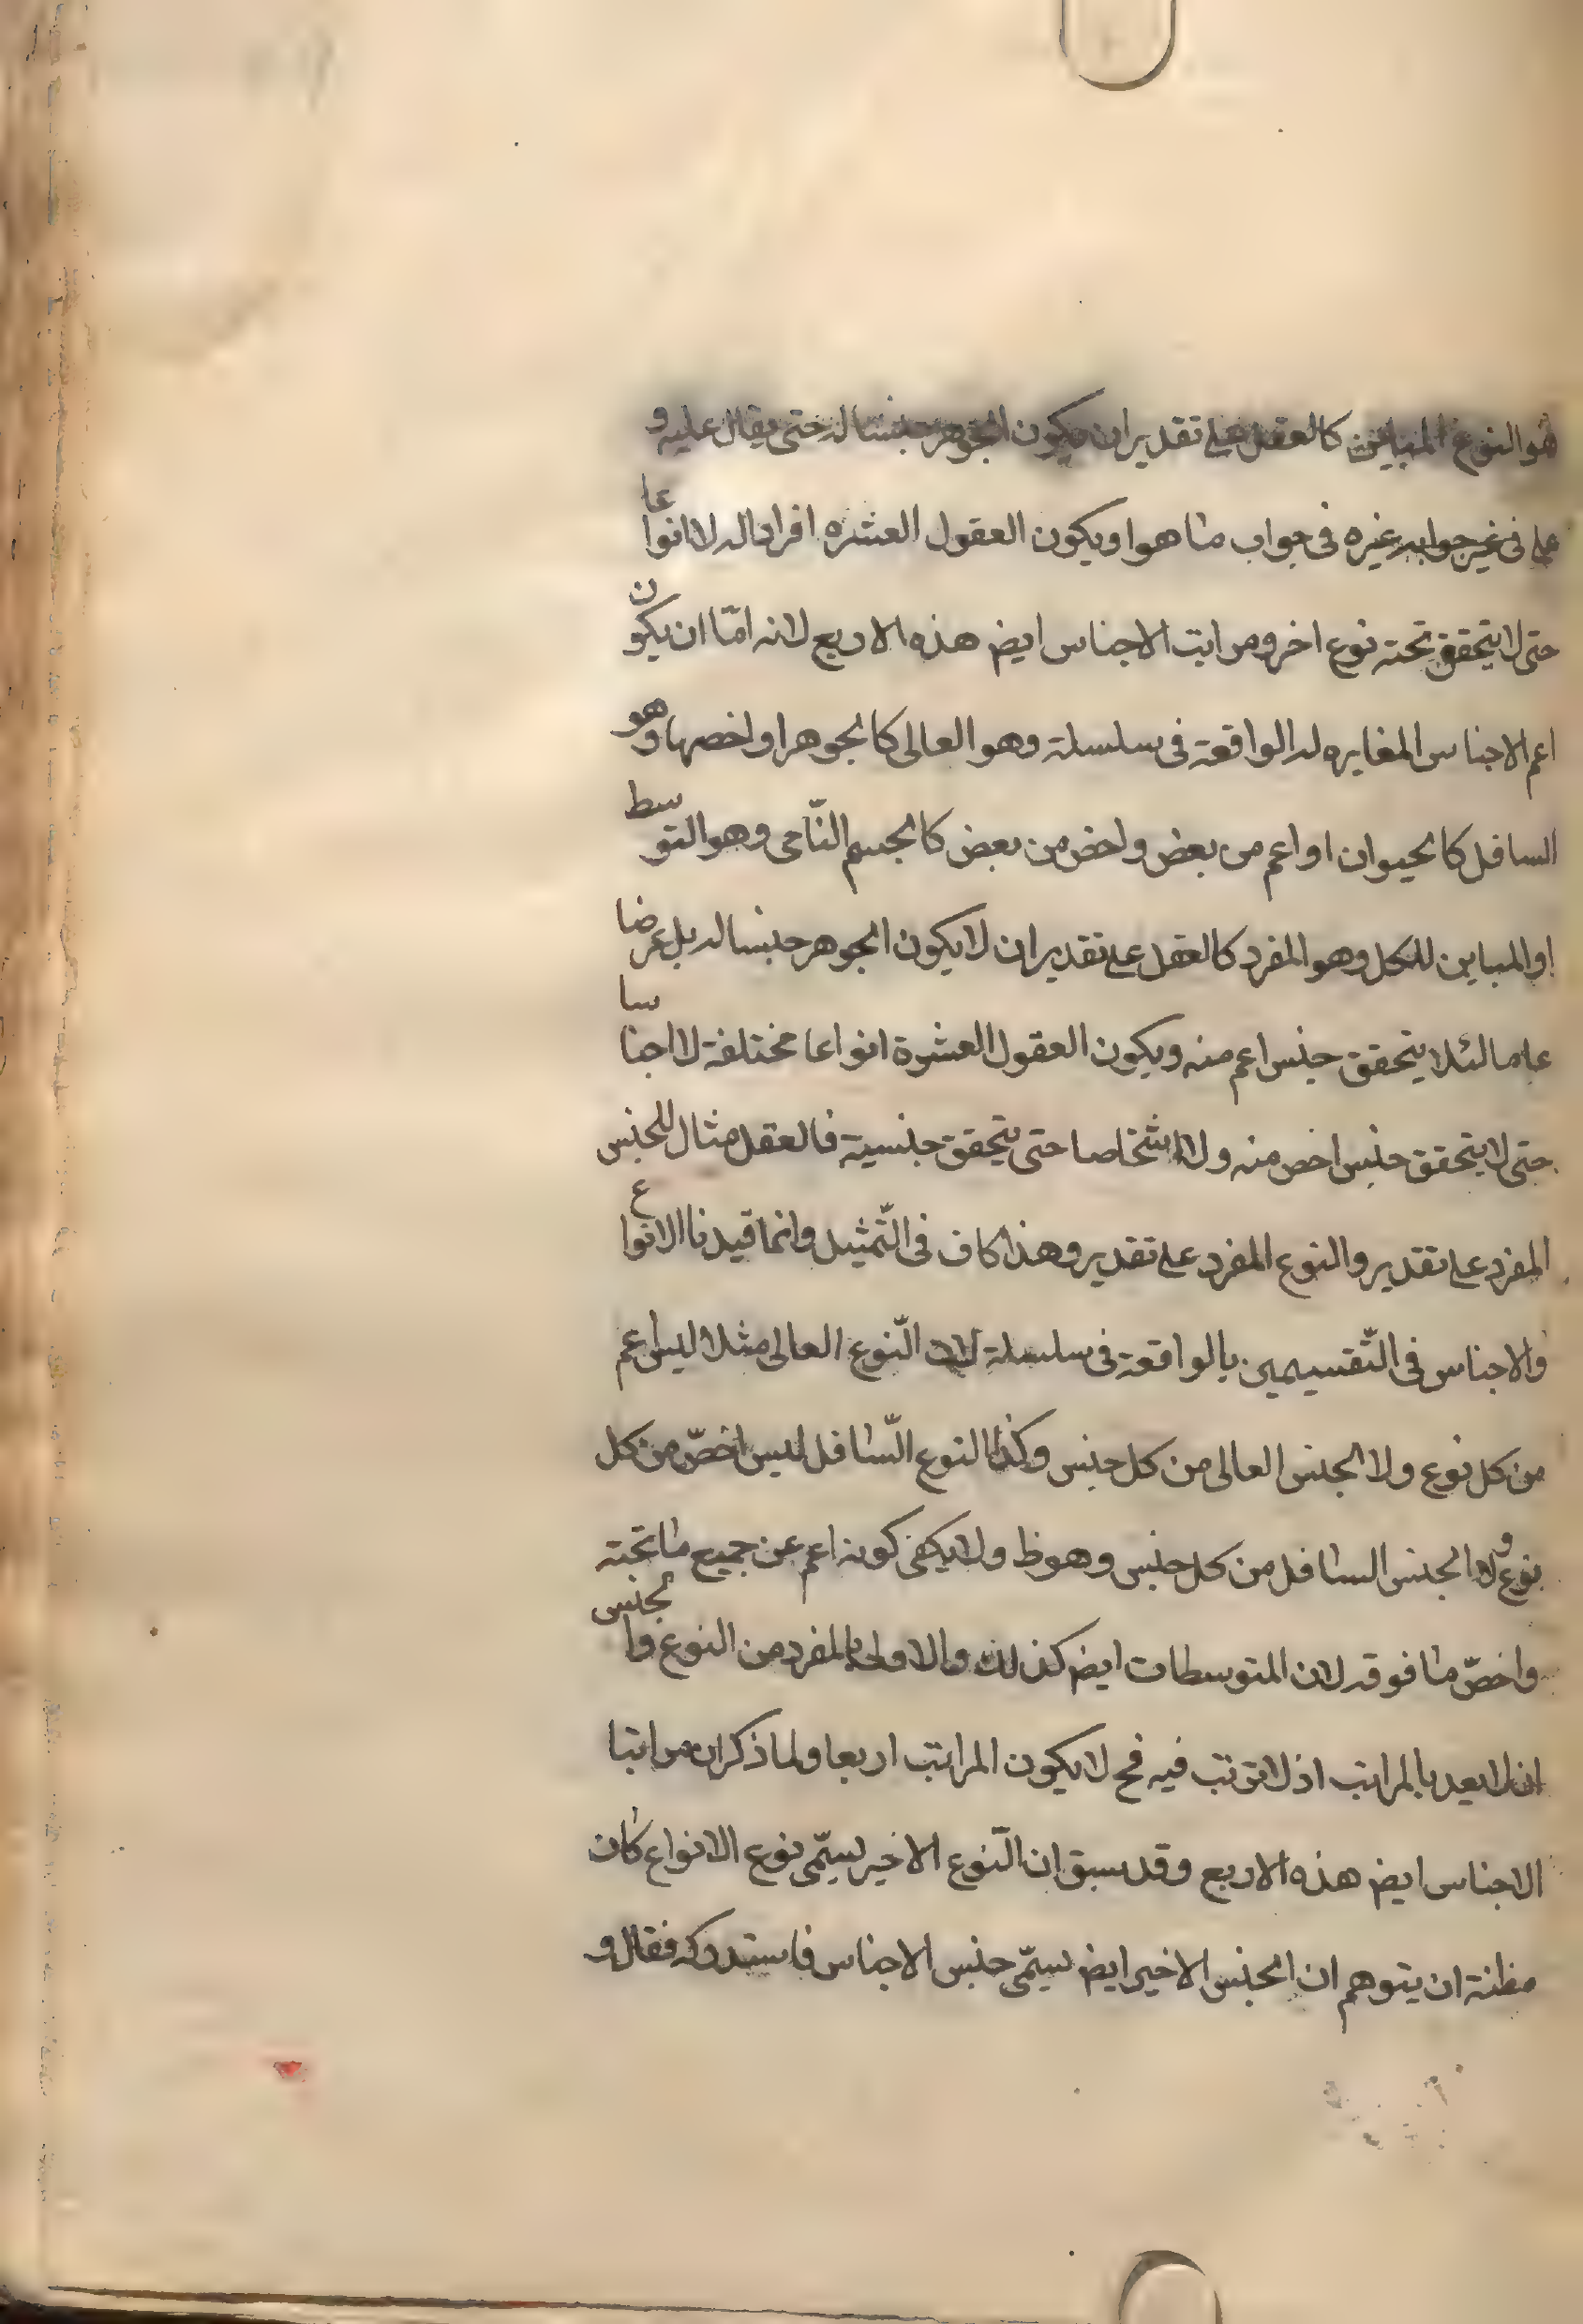 هو النوع المباين كالعقل على تقدير ان يكون الجوهر جنسا له حتى يقال عليه و
على غيره فى جواب ما هو ويكون العقول العشره افرادا له لا انواعا
حتى لا يتحقق تحته نوع اخر ومراتب الاجناس ايض هذه الاربع لانه امّا ان يكون
اعم الاجناس المغايره له الواقعة فى سلسلة وهو العالى كالجوهر او اخصها وهو
السافل كالحيوان او اعم من بعض واخص من بعض كالجسم النّامى وهو المتوسط
او المباين للكل وهو المفرد كالعقل على تقدير ان لا يكون الجوهر جنسا له بل عرضا
عاما لئلا يتحقق جنس اعم منه ويكون العقول العشرة انواعا مختلفة لا اجناسا
حتى لا يتحقق جنس اخص منه ولا اشخاصا حتى يتحقق جنسية فالعقل مثال للجنس
المفرد على تقدير والنوع المفرد على تقدير وهذا كاف فى التّمثيل وانما قيدنا الانواع
والاجناس فى التّقسيمين بالواقعة فى سلسلة لان النّوع العالى مثلا ليس اعم
من كل نوع ولا الجنس العالى من كل جنس وكذا النوع السّافل ليس اخصّ من كل
نوع ولا الجنس السافل من كل جنس وهو ظ ولا يكفى كونه اعم عن جميع ما تحته
واخصّ ما فوقه لان المتوسطات ايض كذلك والاولى بالمفرد من النوع والجنس
ان لا يعد بالمراتب اذ لا ترتب فيه فح لا يكون المراتب اربعا ولما ذكر ان مراتبا
الاجناس ايض هذه الاربع وقد سبق ان النّوع الاخير يسمّى نوع الانواع كان
مظنة ان يتوهم ان الجنس الاخير ايض يسمّى جنس الاجناس فاستدركه فقال و